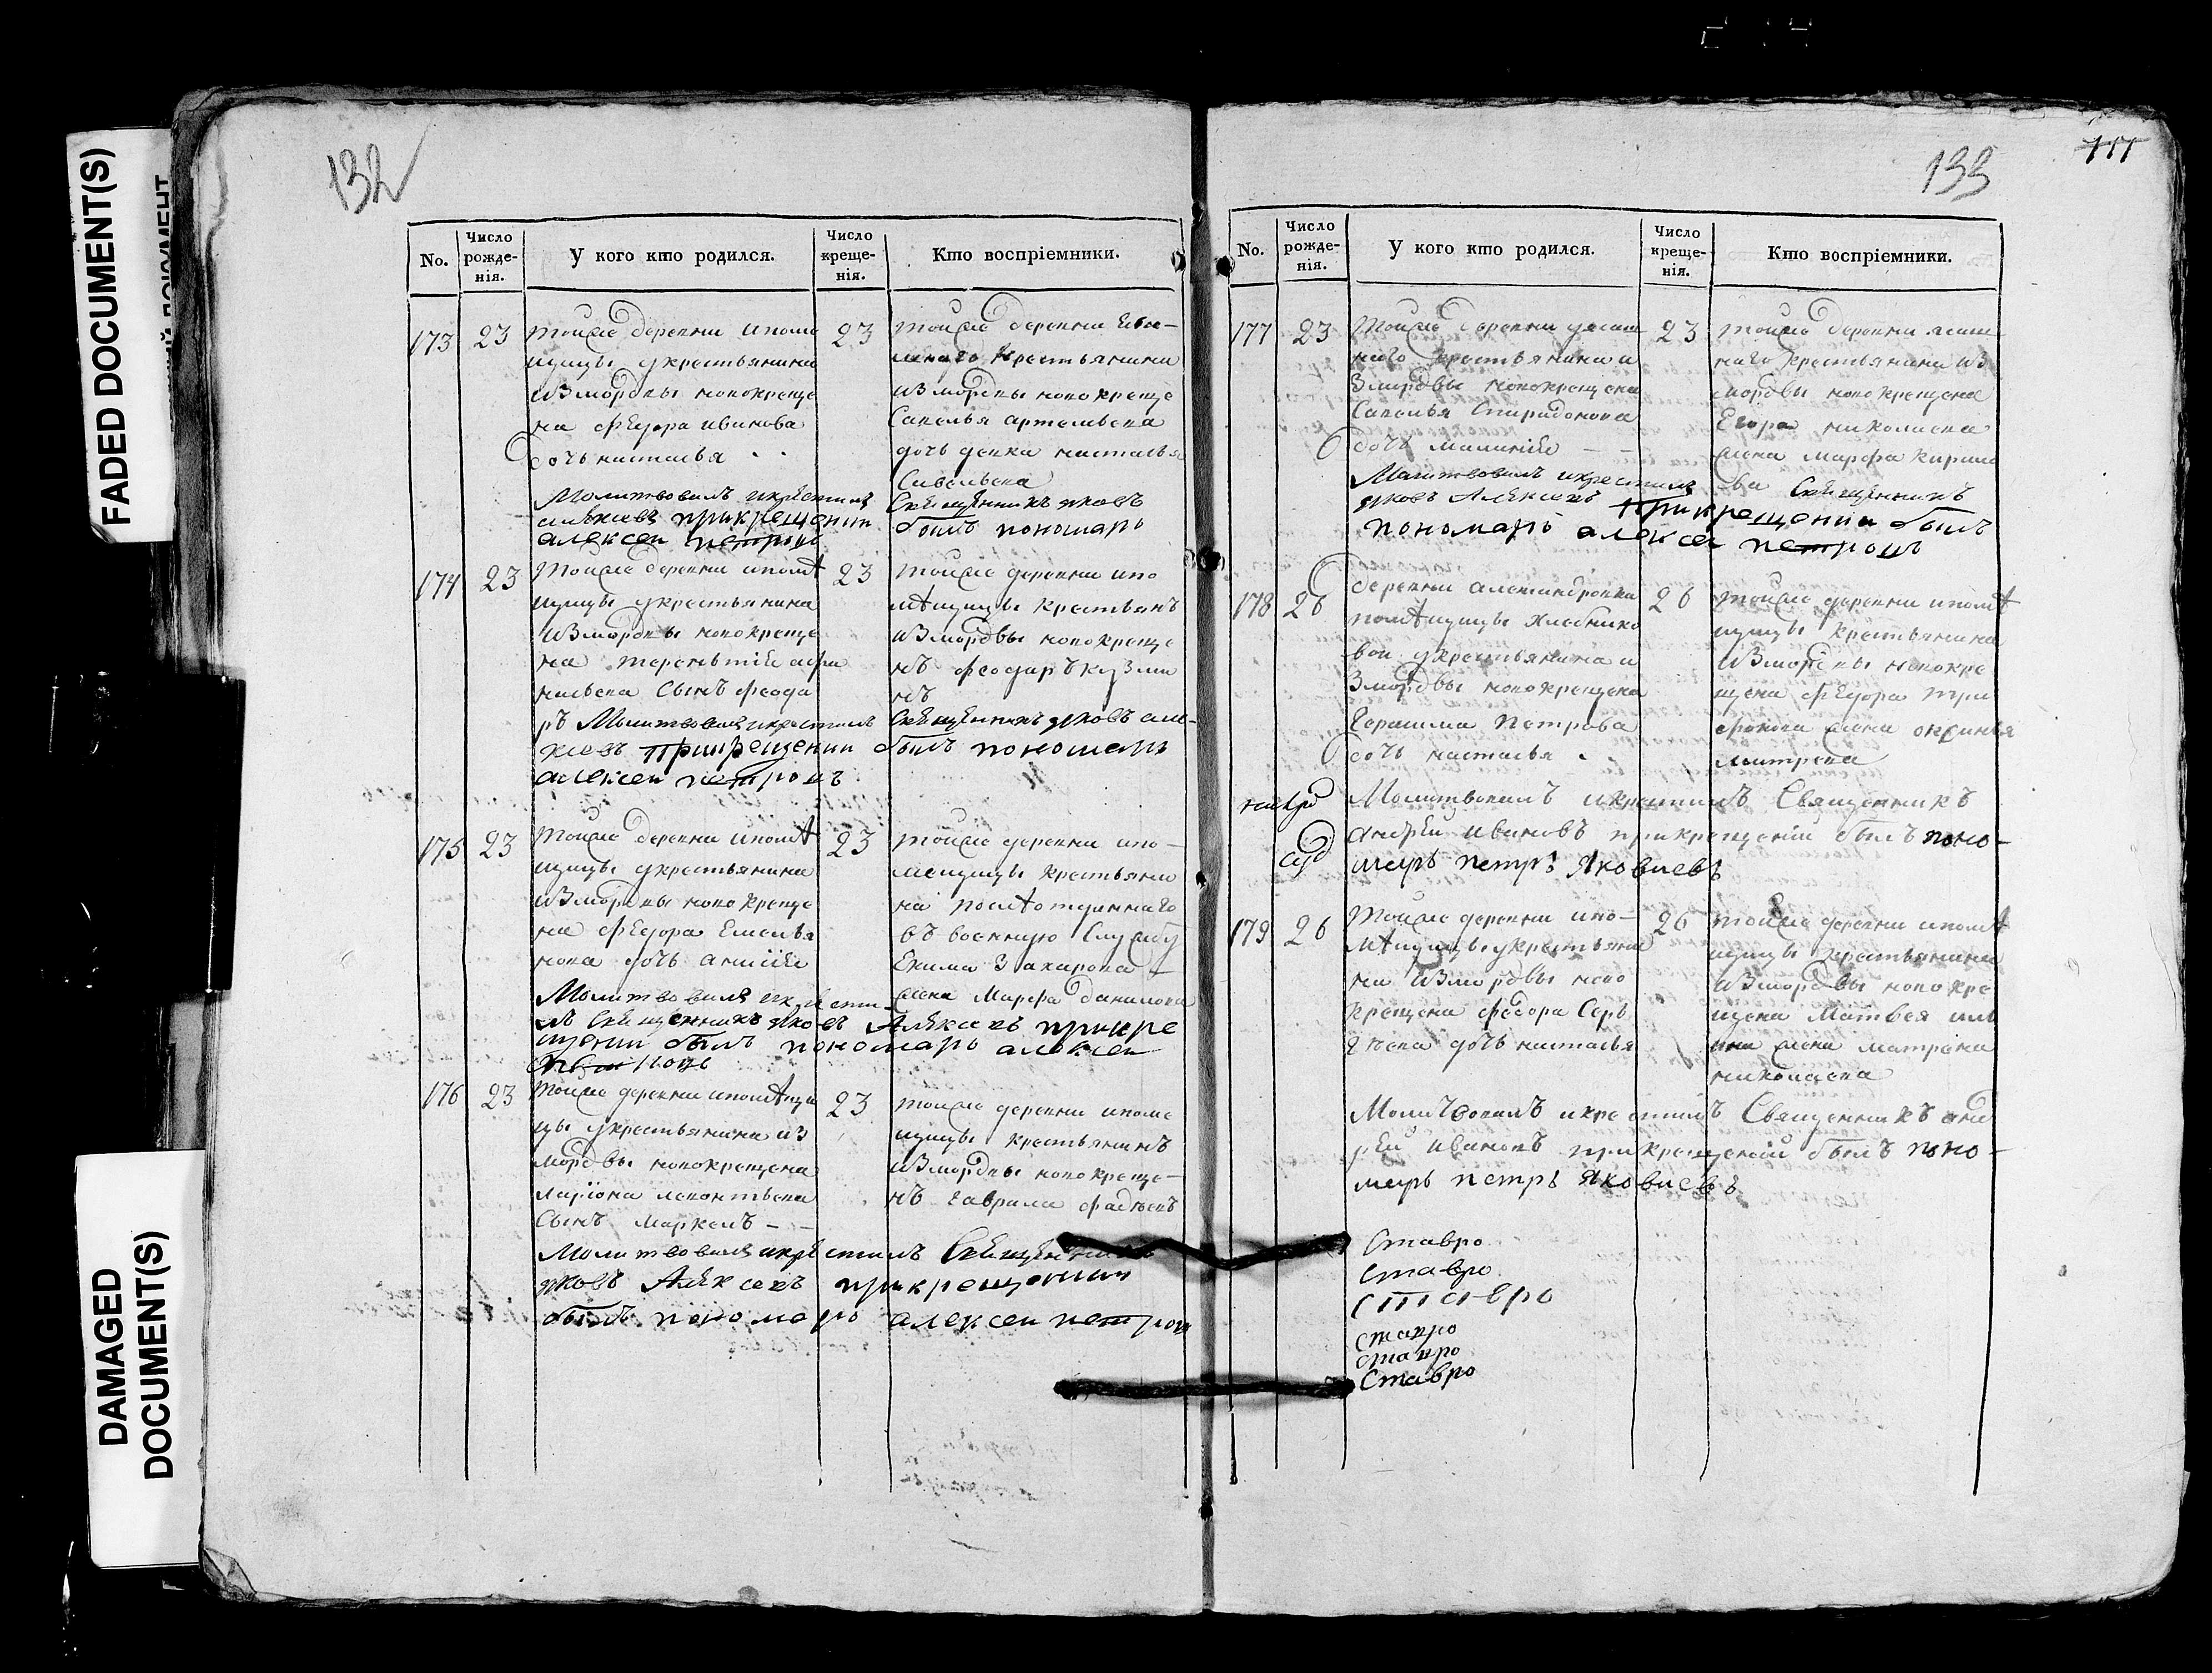 FADED DOCUMENT(S)
DAMAGED
DOCUMENT(S)
132
No.
Число
рожде-
нія.
У кого кто родился.
Число
креще-
нія.
Кто воспріемники.
173
23
тойже деревни ипоме
щицы укрестьянина
измордвы новокреще
на Федора иванова
дочь наталья
23
тойже деревни
крестьянина
измордвы новокреще
Савелья
дочь девка наталья
Савельева
Молитвовалъ икрестилъ Священникъ яковъ
алексевъ прикрещении былъ пономарь
алексеи петровъ
174
23
тойже деревни ипомѣ
щицы укрестьянина
измордвы новокреще
на терентiя
сынъ феода
ръ
23
тойже деревни ипо
мѣщицы крестьянъ
измордвы новокреще
нъ феодаръ кузми
нъ
Молитвовалъ икрестилъ Священникъ яковъ але-
ксевъ прикрещении былъ пономарь
алексеи петровъ
175
23
тойже деревни ипомѣ
щицы укрестьянина
измордвы новокреще
на Федора Емелья
нова дочь
23
тойже деревни ипо-
мещицы крестьяни
на
въ военную Службу
Екима Захарова
жена Марфа данилова
Молитвовалъ икрести-
лъ Священникъ яковъ Алексевъ прикре
щении былъ пономарь алексеи
петровъ
176
23
тойже деревни ипомѣщи
цы укрестьянина из
мордвы новокрещена
ларiона леонтьева
сынъ Маркелъ
23
тойже деревни ипоме
щицы крестьянинъ
измордвы новокреще-
нъ гаврила фадѣевъ
Молитвовалъ икрестилъ Священникъ
яковъ Алексевъ прикрещении
былъ пономарь алексеи петровъ
133
No.
Число
рожде-
нія.
У кого кто родился.
Число
креще-
нія.
Кто воспріемники.
177
23
тойже деревни
крестьянина и
змордвы новокрещена
Савелья Спиридонова
дочь
23
тойже деревни
крестьянина из
мордвы новокрещена
Егора николаева
жена марфа кирило
ва
Молитвовалъ икрестилъ Священникъ
яковъ Алексевъ прикрещении былъ
пономарь алексеи петровъ
178
26
деревни александровки
помѣщицы Хлебнико
вой укрестьянина и
змордвы новокрещена
Герасима Петрова
дочь наталья
26
тойже деревни ипомѣ
щицы крестьянина
измордвы новокре
щена Федора три
фонова жена
Молитвовалъ икрестилъ Священникъ
андрей ивановъ прикрещенiи былъ поно-
марь петръ яковлевъ
179
26
тойже деревни ипо-
мѣщицы укрестьяни
на измордвы ново
крещена федора Сер
гѣева дочь наталья
26
тойже деревни ипомѣ
щицы крестьянина
измордвы новокре
щена Матвея иль
ина жена матрена
николаева
Молитвовалъ икрестилъ Священникъ анд
рей ивановъ прикрещенiи былъ поно-
марь петръ яковлевъ
Ставро
Ставро
Ставро
Ставро
Ставро
Ставро